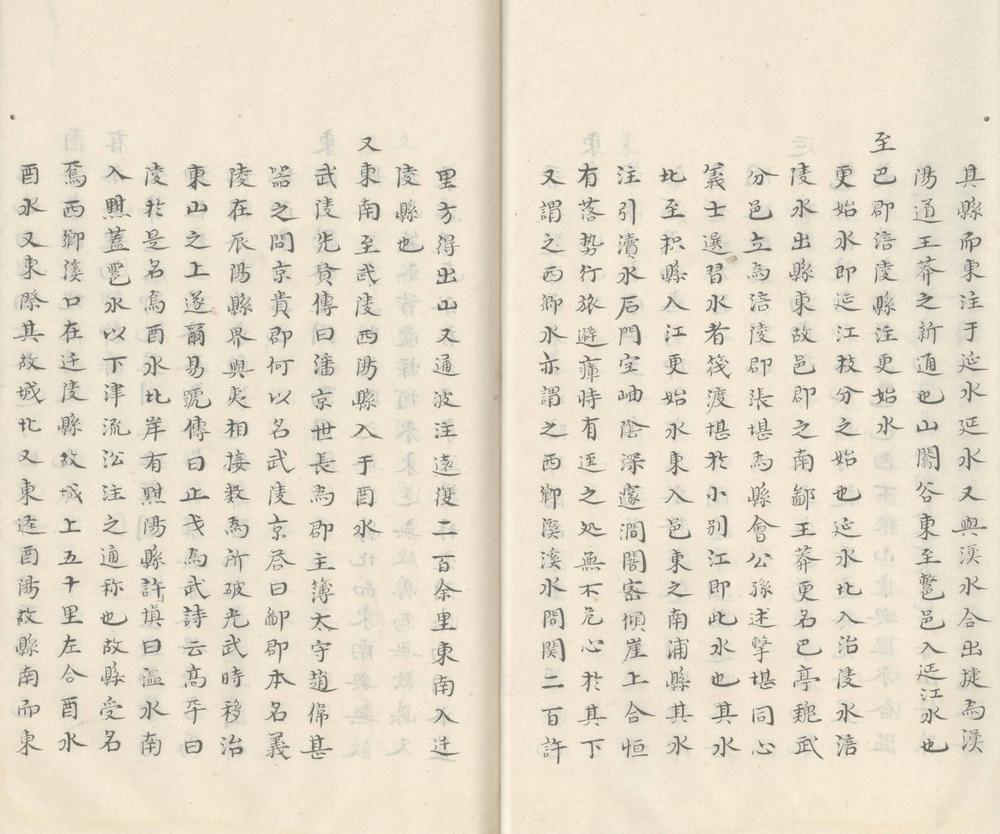 其縣而東注于延水延水又與漢水合出揵為漢
陽道王莽之新通也山闟谷東至鷩邑入延江水也
至巴郡涪陵縣注更始水
更始水即延江枝分之始也延水北入涪陵水涪
陵水出縣東故邑郡之南鄙王莽更名巴亭魏武
分邑立為涪陵郡張堪為縣會公孫述擊堪同心
義士選習水者筏渡堪於小別江即此水也其水
北至枳縣入江更始水東入邑東之南浦縣其水
注引瀆水后門空岫陰深邃澗闇密傾崖上合恒
有落勢行旅避瘴時有逕之処無不危心於其下
又謂之西鄉水亦謂之西鄉溪溪水間関二百許
里方得出山又通波注遠復二百余里東南入迁
陵縣也
又東南至武陵酉陽縣入于酉水
武陵先賢傳曰潘京世長為郡主簿太守趙偉甚
器之問京貴郡何以名武陵京答曰鄙郡本名義
陵在辰陽縣界與夷相接數為所破光武時移治
東山之上遂爾易號傳曰止戈為武詩云高平曰
陵於是名焉酉水北岸有黚陽縣許慎曰溫水南
入黚蓋鷩水以下津流沿注之通称也故縣受名
焉西鄉溪口在迁陵縣故城上五十里左合酉水
酉水又東際其故城北又東逕酉陽故縣南而東